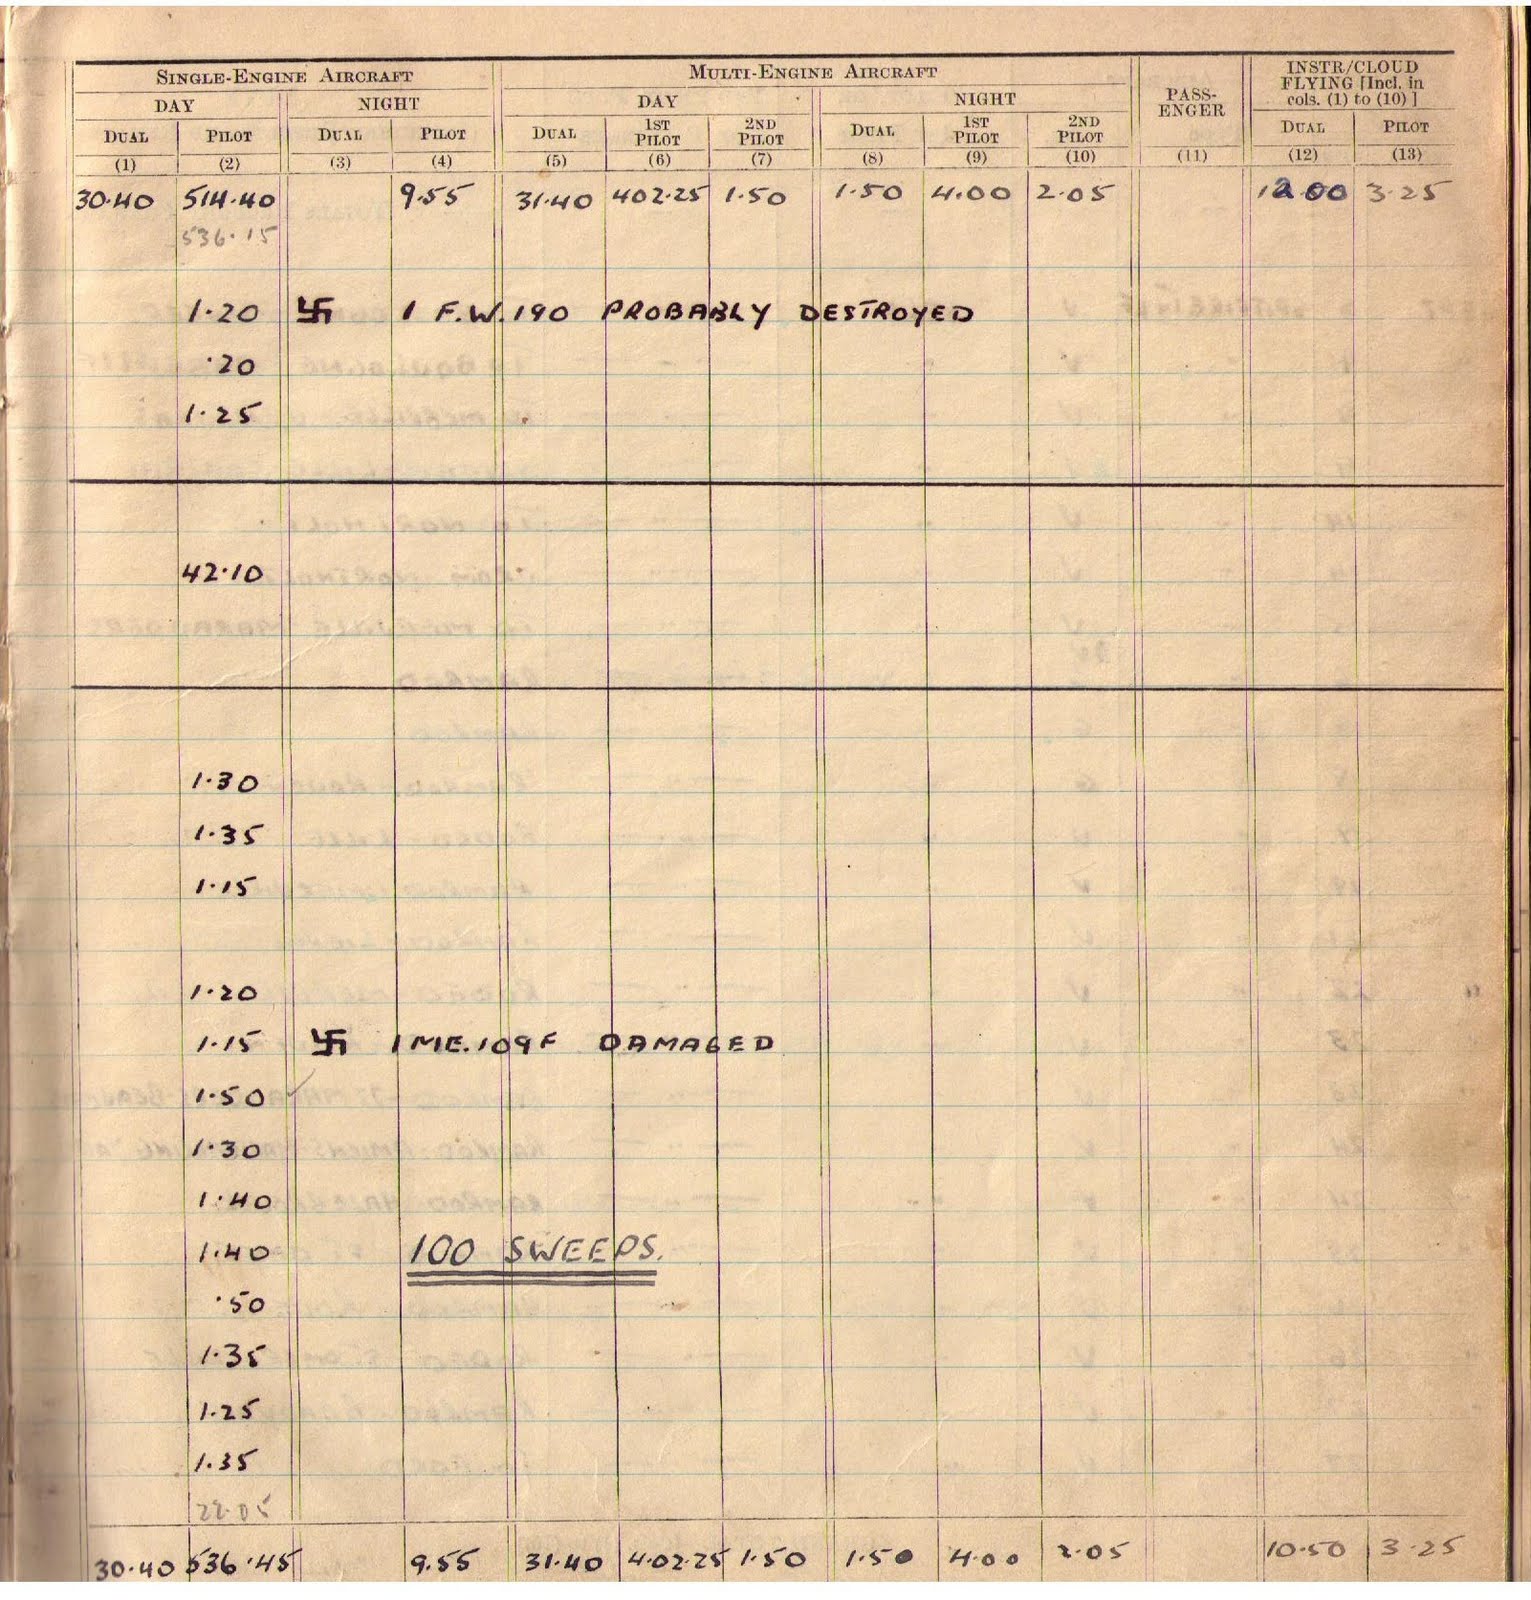 SINGLE-ENGINE AIRCRAFT MULTI-ENGINE AIRCRAFT PASS-ENGER INSTR/CLOUD FLYING [Incl. in cols. (1) to (10) ]
DAY NIGHT DAY NIGHT
DUAL PILOT DUAL PILOT DUAL 1ST PILOT 2ND PILOT DUAL 1ST PILOT 2ND PILOT DUAL PILOT
(1) (2) (3) (4) (5) (6) (7) (8) (9) (10) (11) (12) (13)
30.40 514.40 9.55 31.40 402.25 1.50 1.50 4.00 2.05 3.25
536.15
1.20 卐 1 F.W.190 PROBABLY DESTROYED
.20
1.25
42.10
1.30
1.35
1.15
1.20
1.15 卐 1 ME.109F DAMAGED
1.50 ✓
1.30
1.40
1.40 100 SWEEPS.
.50
1.35
1.25
1.35
22.05
30.40 536.45 9.55 31.40 402.25 1.50 1.50 4.00 2.05 10.50 3.25